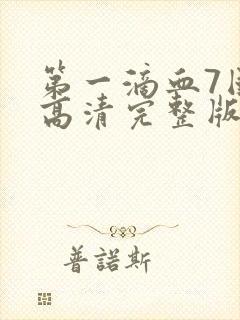 第一滴血7国
高清完整版
普諾斯